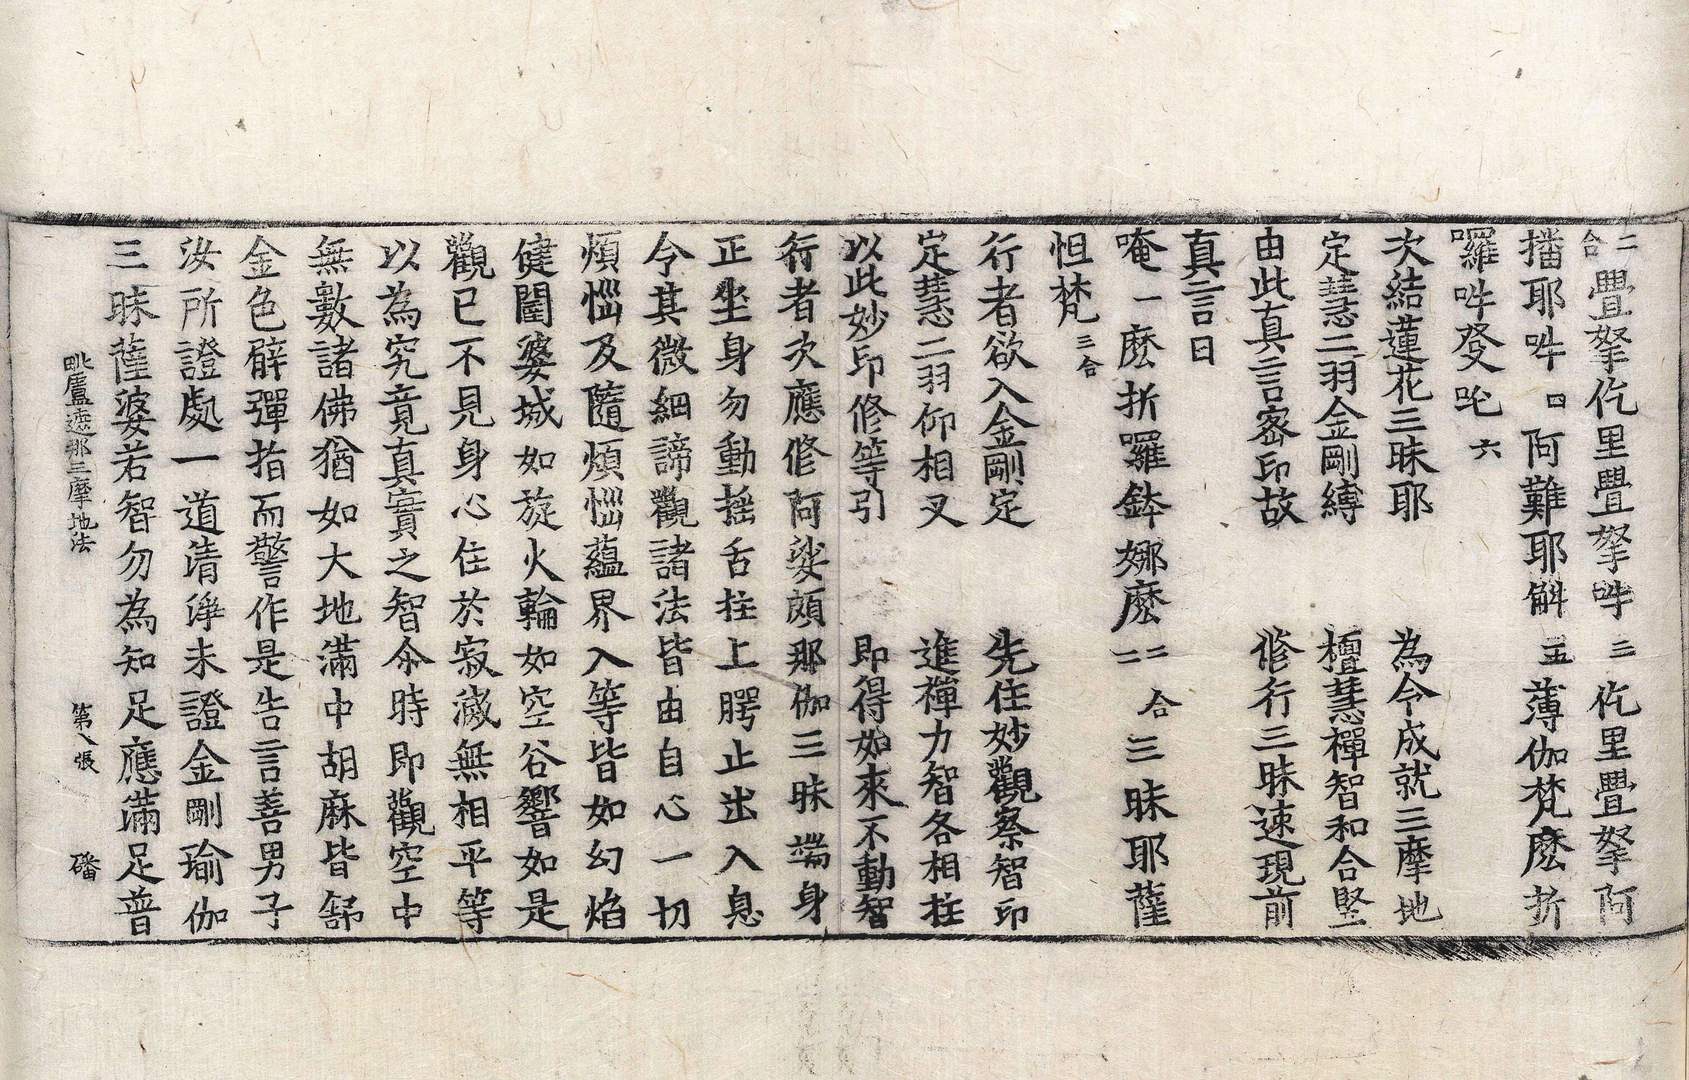 二合疊拏仡里疊拏吽三仡里疊拏阿
播耶吽四阿難耶斛五薄伽梵麽折
囉吽發吒六
次結蓮花三昧耶　為令成就三摩地
定慧二羽金剛縛　檀慧禪智和合竪
由此真言密印故　修行三昧速現前
真言曰
唵一麽折羅鉢娜麽二合二三昧耶薩
怛梵三合
行者欲入金剛定　先住妙觀察智印
定慧二羽仰相叉　進禪力智各相拄
以此妙印修等引　即得如來不動智
行者次應修阿娑頗那伽三昧端身
正坐身勿動搖舌拄上腭止出入息
令其微細諦觀諸法皆由自心一切
煩惱及隨煩惱蘊界入等皆如幻焰
健闥婆城如旋火輪如空谷響如是
觀已不見身心住於寂滅無相平等
以為究竟真實之智尒時即觀空中
無數諸佛猶如大地滿中胡麻皆舒
金色臂彈指而警作是告言善男子
汝所證處一道清淨未證金剛瑜伽
三昧薩婆若智勿為知足應滿足普
毗盧遮那三摩地法　第八張　磻